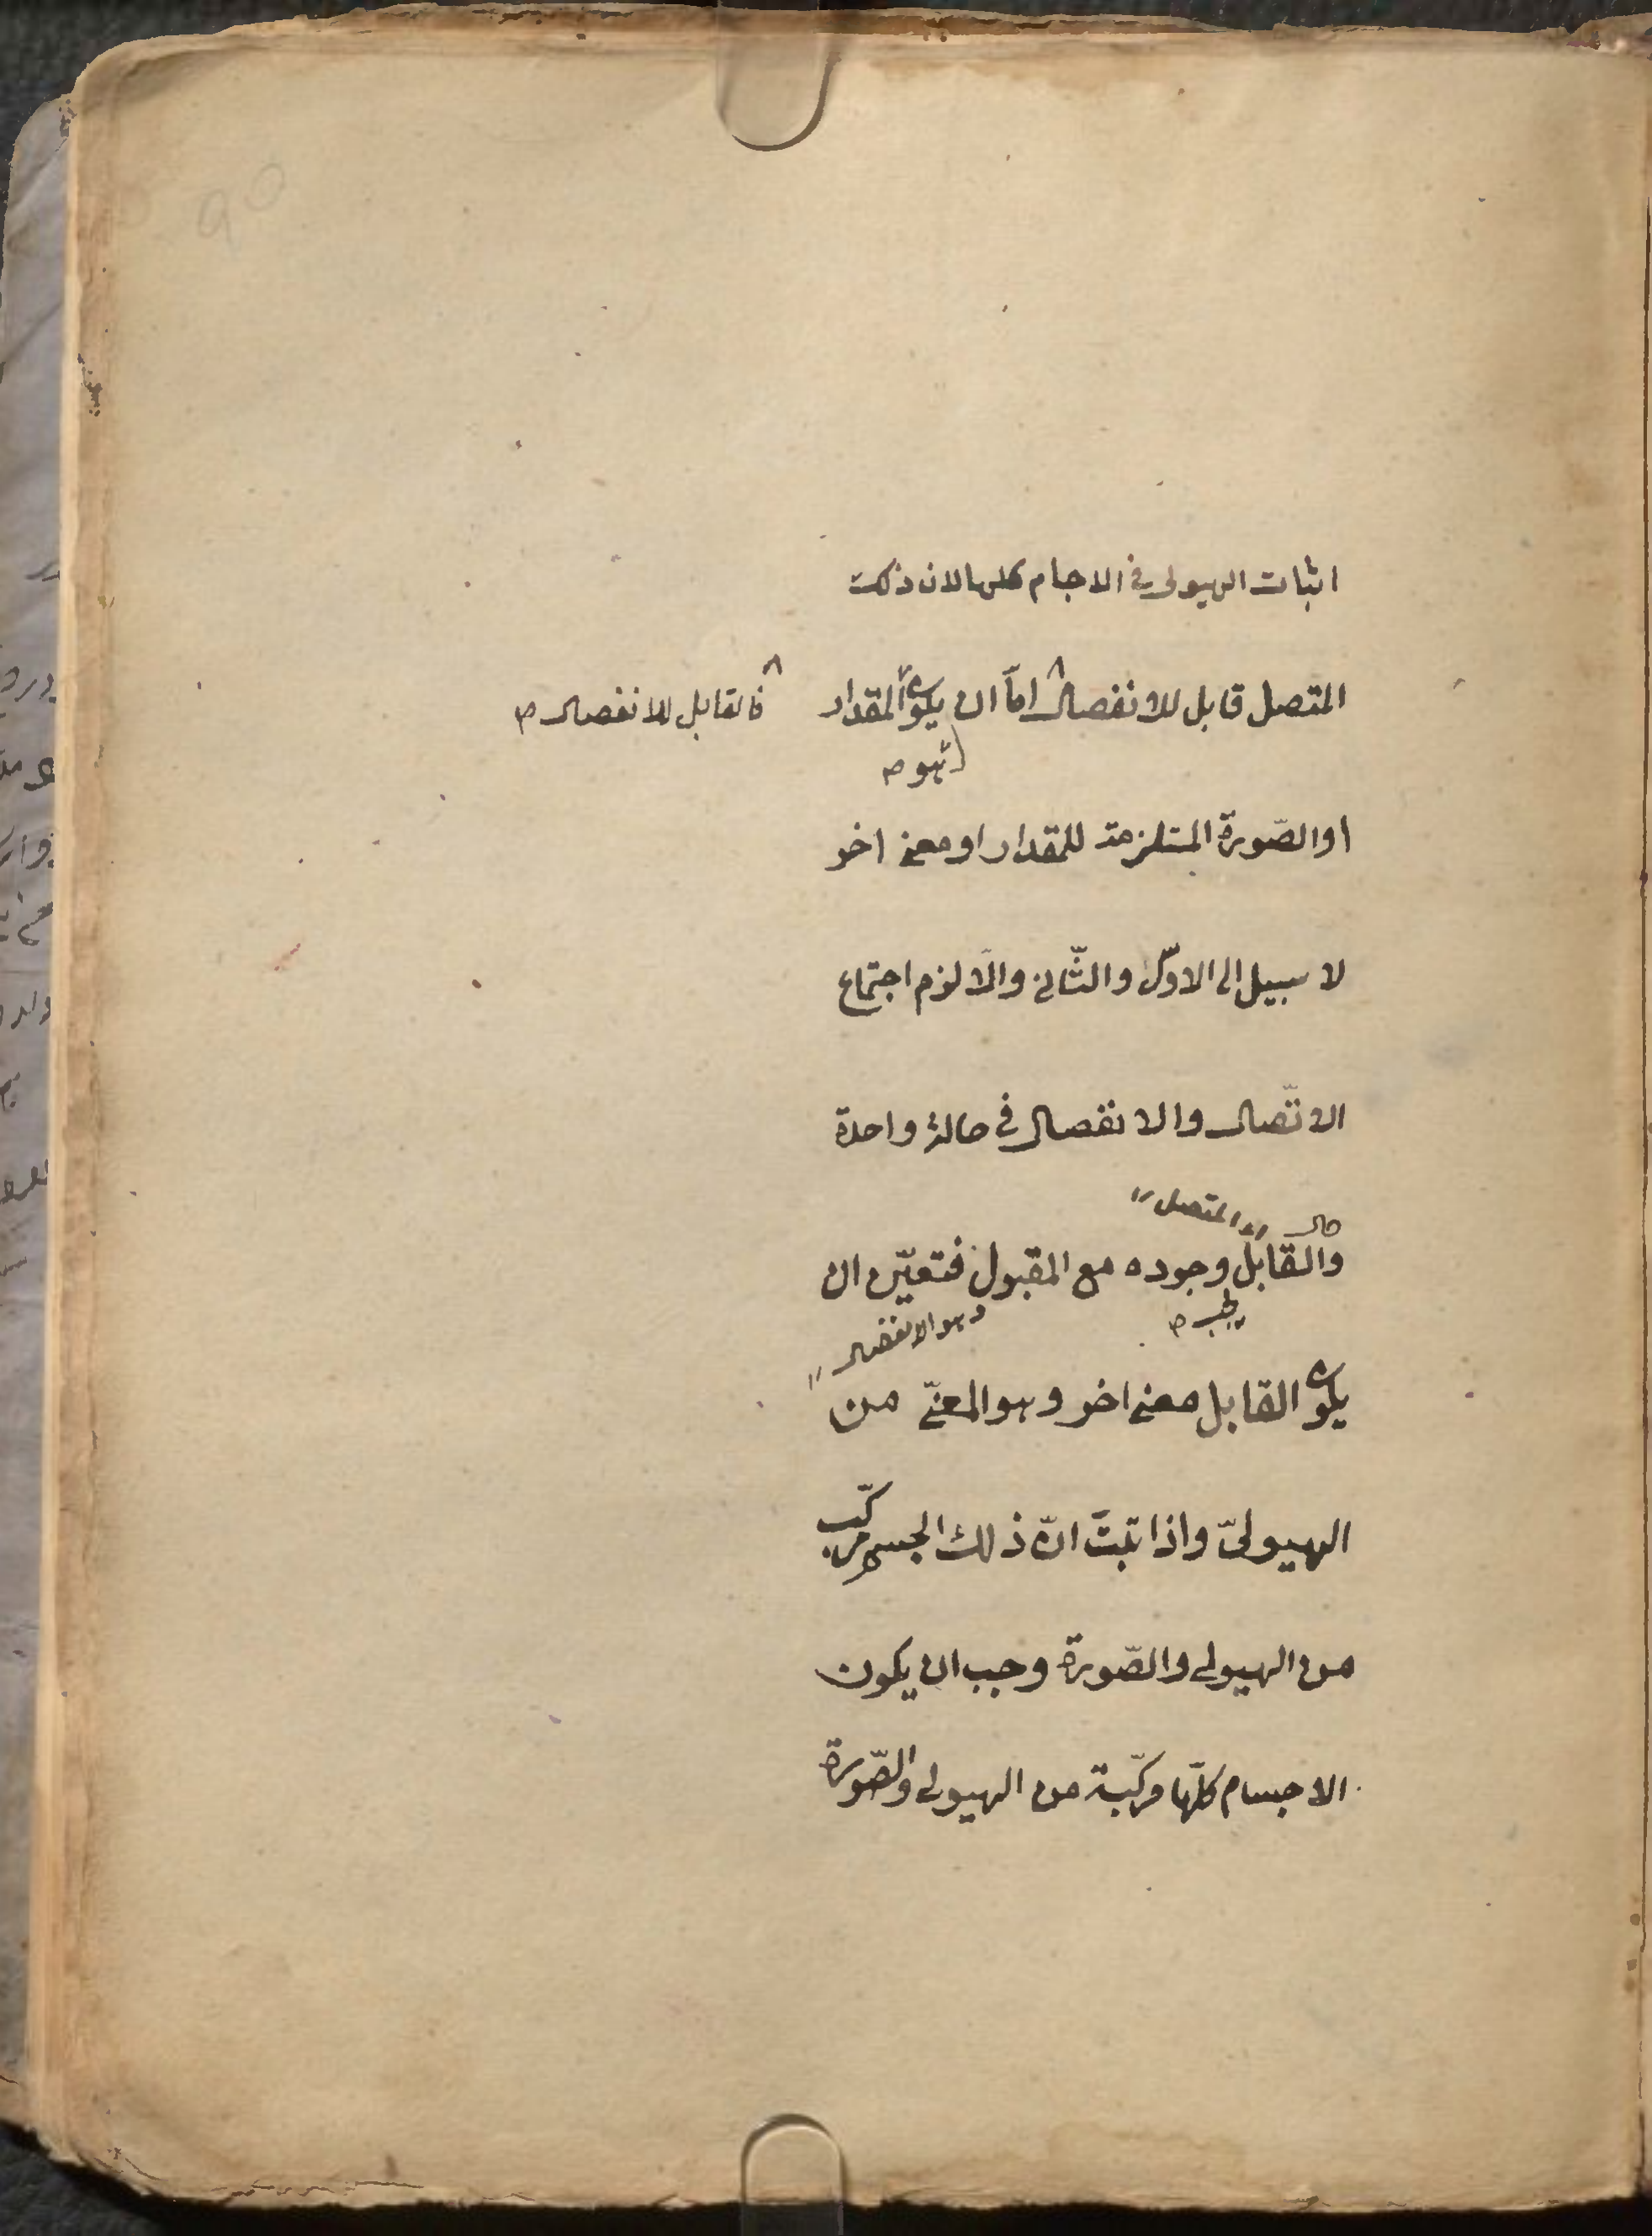 اثبات الهيولى في الاجسام كلها لان ذلك
المتصل قابل للانفصال اما ان يكون المقدار
فالقابل للانفصال ص
هو ص
او الصّورة المستلزمة للمقدار او معنى اخر
لا سبيل الى الاوّل والثّانى والّا لزم اجتماع
الاتّصال والانفصال في حالة واحدة
حال المتصل
والقابل وجوده مع المقبول فتعيّن ان
يجب ص
وهو الانفصال
يكون القابل معنى اخر وهو المعنىّ من
الهيولىّ واذا ثبتَ انّ ذلك الجسم مركّب
من الهيولى والصّورة وجب ان يكون
الاجسام كلّها مركّبة من الهيولى والصّورة